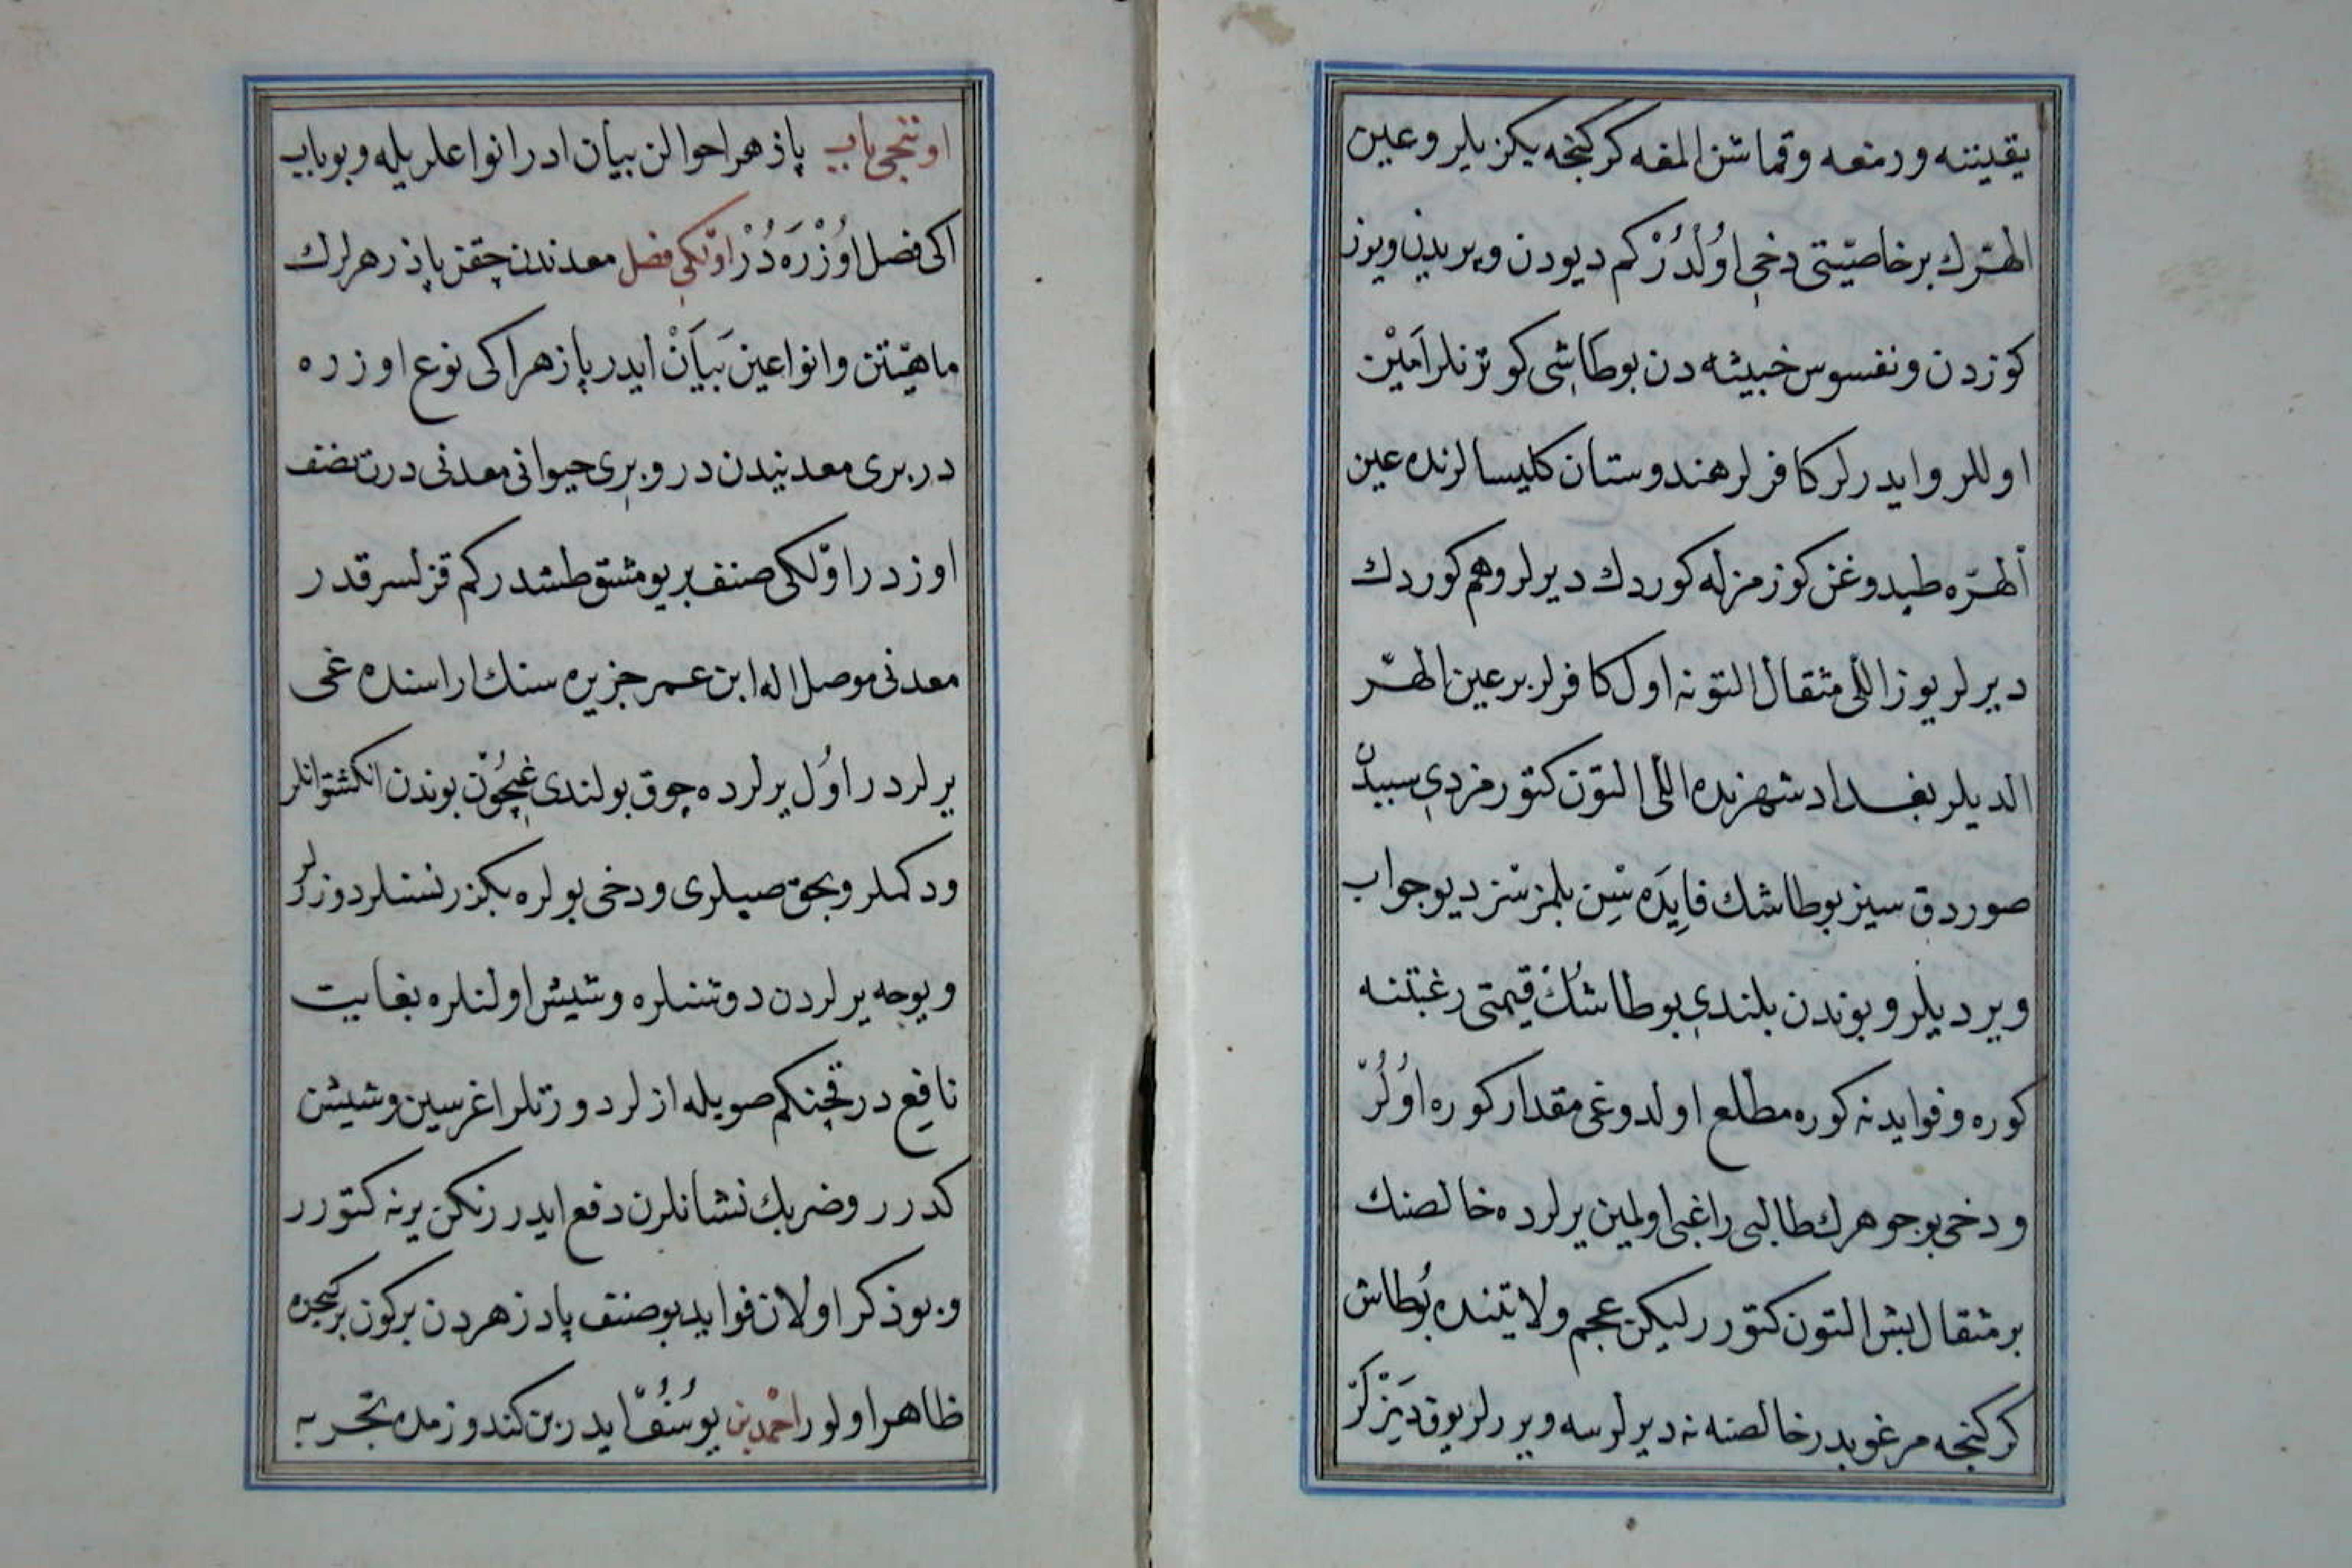 یقیننه ورمنعه وقماشن المغه کرکنجه یکزیلر وعین
الهرّك برخاصیّتی دخی اُولْدُرْ کم دیودن وپریدن ویوز
کوزدن ونفسوس خبیثه دن بوطاشی کوترنلر اَمیْن
اوللر وایدرلر کافرلر هندوستان کلیسالرنده عین
الهرّه طپدوغن کوزمزله کوردك دیرلر وهم کوردك
دیرلر یوز اللی مثقال التونه اول کافرلر بر عین الهرّ
الدیلر بغداد شهرنده اللی التون کتورمزدی سببدن
صوردق سیز بوطاشك فایِدَه سِن بلمزسز دیو جواب
ویردیلر وبوندن بلندی بوطاشُكْ قیمتی رغبتنه
کوره وفوایدنه کوره مطلع اولدوغی مقدار کوره اُولُرْ
ودخی بوجوهرك طالبی راغبی اولمین یرلرده خالصنك
بر مثقال بش التون کتورر لیکن عجم ولایتنده بُوطاش
کرکنجه مرغوبدر خالصنه نه دیرلرسه ویررلر یوق دَیزْ کَرْ
اوننجی باب پاذهر احوالن بیان ادر انواعلریله وبوباب
اکی فصل اُوزْرَه دُرْ اوّلکی فصل معدندن چقن پاذرهرلرك
ماهیّتن وانواعین بَیَانْ ایدر پازهر اکی نوع اوزره
در بری معدنیدن در وبری حیوانی معدنی درت صنف
اوزدر اوّلکی صنف بر یومشق طشدر کم قزلسرقدر
معدنی موصل اله ابن عمر جزیره سنك اراسنده غی
یرلردر اول یرلرده چوق بولندی غیچُون بوندن انکشتوانلر
ودکملر وبچق صپلری ودخی بولره بکزر نسنلر دوزرلر
ویوجه یرلردن دوشنلره وشیش اولنلره بغایت
نافیع در قچنکم صویله ازلر دورتلر اغرسین وشیشن
کدرر وضربك نشانلرن دفع ایدر رنکن یرنه کتورر
وبوذکر اولان فواید بوصنف پادزهردن برکون برکیجده
ظاهر اولور احمد بن یُوسُفْ ایدر بن کندوزمده تجربه